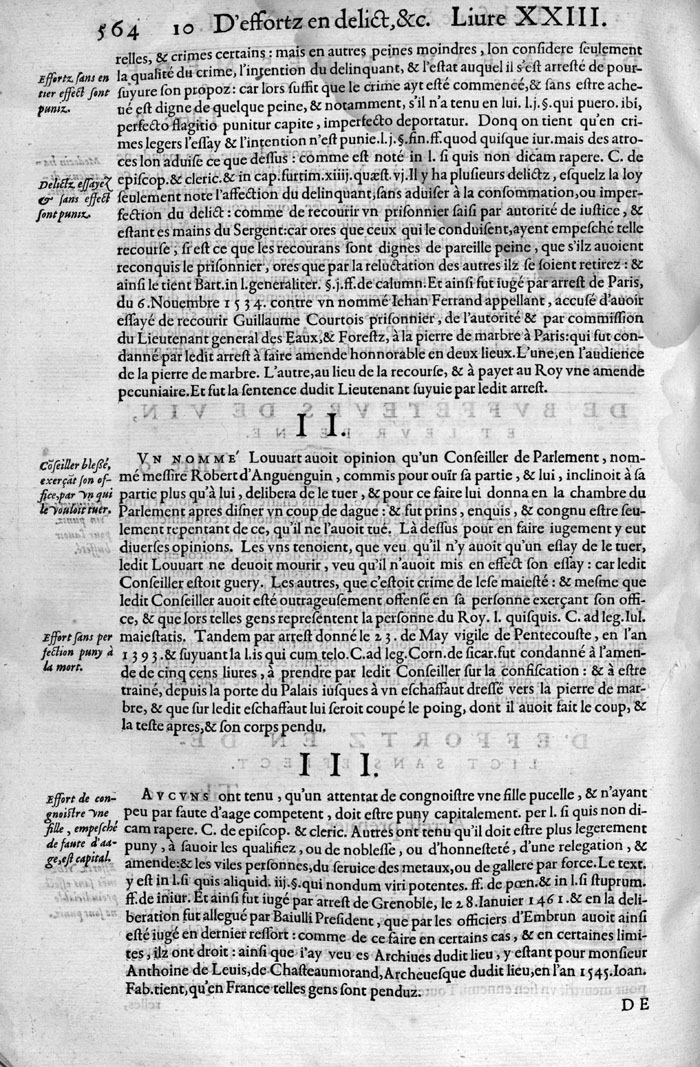 564 10 D'effortz en delict, &c. Liure XXIII.
relles, & crimes certains : mais en autres peines moindres, lon considere seulement
la qualité du crime, l'intention du delinquant, & l'estat auquel il s'est arresté de pour-
suyure son propoz: car lors suffit que le crime ayt esté commencé, & sans estre ache-
ué est digne de quelque peine, & notamment, s'il n'a tenu en lui. l.j.§.qui puero. ibi,
perfecto flagitio punitur capite, imperfecto deportatur. Donq on tient qu'en cri-
mes legers l'essay & l'intention n'est punie.l.j.§.fin.ff.quod quisque iur.mais des atro-
ces lon aduise ce que dessus : comme est noté in l. si quis non dicam rapere. C. de
episcop.& cleric.& in cap.furtim.xiiij.quæst.vj.Il y ha plusieurs delictz, esquelz la loy
seulement note l'affection du delinquant, sans aduiser à la consommation, ou imper-
fection du delict : comme de recourir vn prisonnier saisi par autorité de iustice, &
estant es mains du Sergent:car ores que ceux qui le conduisent, ayent empesché telle
recourse, si est ce que les recourans sont dignes de pareille peine, que s'ilz auoient
reconquis le prisonnier, ores que par la reluctation des autres ilz se soient retirez : &
ainsi le tient Bart.in l.generaliter. §.j.ff.de calumn:Et ainsi fut iugé par arrest de Paris,
du 6. Nouembre 1534. contre vn nommé Iehan Ferrand appellant, accusé d'auoir
essayé de recourir Guillaume Courtois prisonnier, de l'autorité & par commission
du Lieutenant general des Eaux, & Forestz, à la pierre de marbre à Paris:qui fut con-
danné par ledit arrest à faire amende honnorable en deux lieux. L'une, en l'audience
de la pierre de marbre. L'autre, au lieu de la recourse, & à payer au Roy vne amende
pecuniaire. Et fut la sentence dudit Lieutenant suyuie par ledit arrest.
Effortz sans en
tier effect sont
puniz.
Delictz essayez
& sans effect
sont puniz.
II.
VN NOMMÉ Louuart auoit opinion qu'un Conseiller de Parlement, nom-
mé messire Robert d'Anguenguin, commis pour ouïr sa partie, & lui, inclinoit à sa
partie plus qu'à lui, delibera de le tuer, & pour ce faire lui donna en la chambre du
Parlement apres disner vn coup de dague : & fut prins, enquis, & congnu estre seu-
lement repentant de ce, qu'il ne l'auoit tué. Là dessus pour en faire iugement y eut
diuerses opinions. Les vns tenoient, que veu qu'il n'y auoit qu'un essay de le tuer,
ledit Louuart ne deuoit mourir, veu qu'il n'auoit mis en effect son essay : car ledit
Conseiller estoit guery. Les autres, que c'estoit crime de lese maiesté : & mesme que
ledit Conseiller auoit esté outrageusement offensé en sa personne exerçant son offi-
ce, & que lors telles gens representent la personne du Roy. l. quisquis. C. ad leg. Iul.
maiestatis. Tandem par arrest donné le 23. de May vigile de Pentecouste, en l'an
1393. & suyuant la l.is qui cum telo.C.ad leg.Corn.de sicar.fut condanné à l'amen-
de de cinq cens liures, à prendre par ledit Conseiller sur la confiscation : & à estre
trainé, depuis la porte du Palais iusques à vn eschaffaut dressé vers la pierre de mar-
bre, & que sur ledit eschaffaut lui seroit coupé le poing, dont il auoit fait le coup, &
la teste apres, & son corps pendu.
Cõseiller blessé,
exerçãt son of-
fice, par vn qui
le vouloit tuer.
Effort sans per
fection puny à
la mort.
III.
AVCVNS ont tenu, qu'un attentat de congnoistre vne fille pucelle, & n'ayant
peu par faute d'aage competent, doit estre puny capitalement. per l. si quis non di-
cam rapere. C. de episcop. & cleric. Autres ont tenu qu'il doit estre plus legerement
puny, à sauoir les qualifiez, ou de noblesse, ou d'honnesteté, d'une relegation, &
amende:& les viles personnes, du seruice des metaux, ou de gallere par force. Le text.
y est in l.si quis aliquid. iij.§.qui nondum viri potentes. ff. de pœn.& in l.si stuprum.
ff.de iniur. Et ainsi fut iugé par arrest de Grenoble, le 28.Ianuier 1461. & en la deli-
beration fut allegué par Baiulli President, que par les officiers d'Embrun auoit ainsi
esté iugé en dernier ressort : comme de ce faire en certains cas, & en certaines limi-
tes, ilz ont droit : ainsi que i'ay veu es Archiues dudit lieu, y estant pour monsieur
Anthoine de Leuis, de Chasteaumorand, Archeuesque dudit lieu, en l'an 1545. Ioan.
Fab.tient, qu'en France telles gens sont penduz.
Effort de con-
gnoistre vne
fille, empesché
de faute d'aa-
ge, est capital.
DE